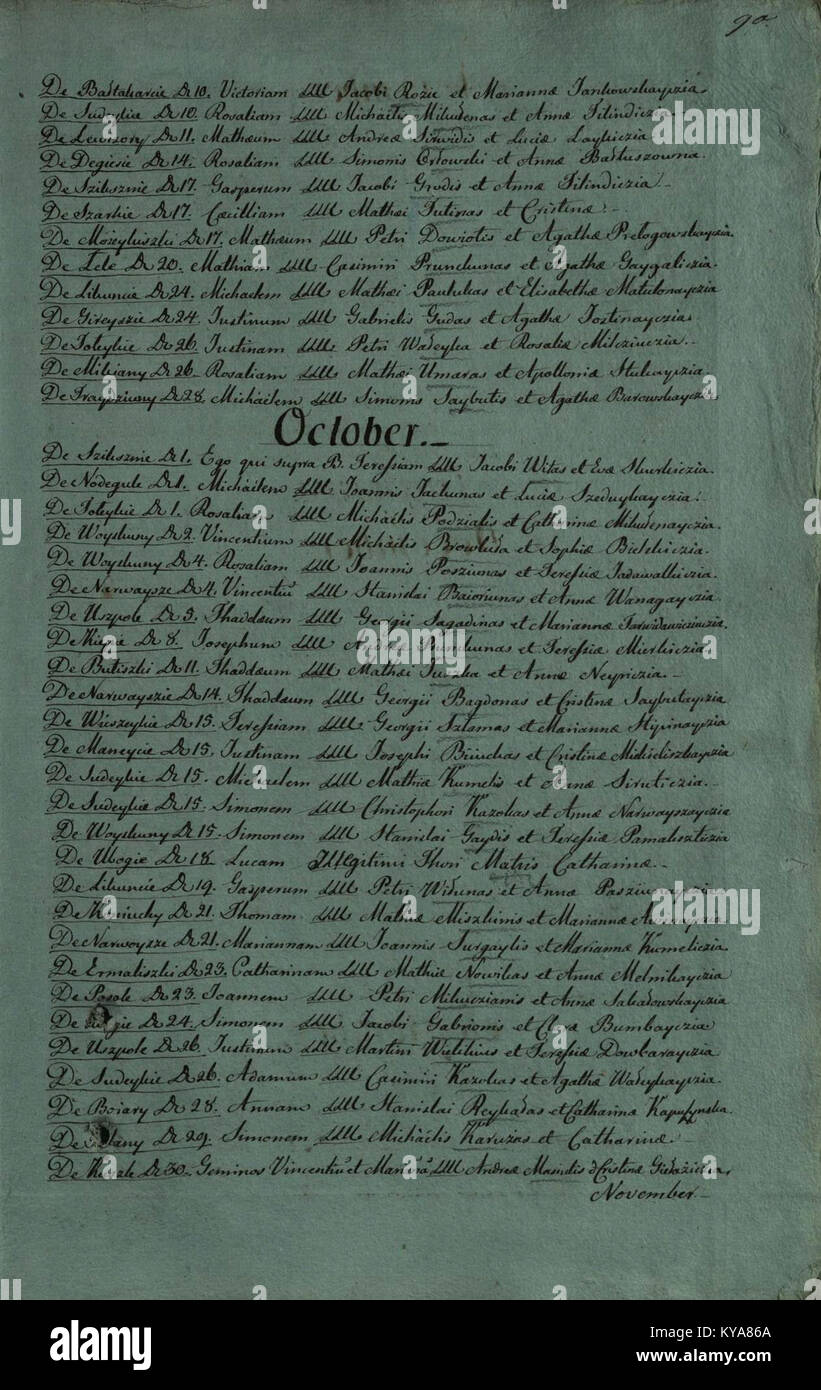 90.
De Baltakarcie D 10. Victoriam LLM Jacobi Rozie et Mariannæ Jankowskayczia
De Sudeykie D 10. Rosaliam LLM Michaelis Milusenas et Annæ Tilindiczia
De Lewiszory D 11. Mathæum LLM Andreæ Sirwidis et Luciæ Laybiczia
De Degiesie D 14. Rosaliam LLM Simonis Orłowski et Annæ Baltuszowna.
De Szilusznie D 17. Gasperum LLM Jacobi Grudis et Annæ Tilindiczia
De Szarkie D 17. Cæcilliam LLM Mathæi Tutinas et Cristinæ.
De Mozyluszki D 17. Mathæum LLM Petri Dowiotis et Agathæ Prełogowskayczia.
De Lele D 20. Mathiam LLM Casimiri Prunckunas et Agathæ Gaygaliczia.
De Libuncie D 24. Michaelem LLM Mathæi Paulukas et Elisabethæ Matulonayczia
De Gireyszie D 24. Justinum LLM Gabrielis Gudas et Agathæ Jostinayczia
De Toleykie D 26. Justinam LLM Petri Waleyka et Rosaliæ Milcziuczia.
De Milciany D 26. Rosaliam LLM Mathæi Umaras et Apolloniæ Stukayczia
De Trayдziuny D 28. Michäelem LLM Simonis Saybutis et Agathæ Barowskayczia
October.
De Szilusznie D 1. Ego qui supra B. Teressiam LLM Jacobi Witas et Evæ Skurkiczia.
De Nodegule D 1. Michäelem LLM Joannis Jackunas et Luciæ Szeduykayczia.
De Toleykie D 1. Rosaliam LLM Michäelis Podzialis et Catharinæ Milusenayczia.
De Woyskuny D 2. Vincentium LLM Michäelis Browluka et Sophiæ Bielskiczia.
De Woyskuny D 4. Rosaliam LLM Joannis Posziunas et Teressiæ Sadawalkiczia.
De Narwaysze D 4. Vincentiu LLM Stanislai Baioriunas et Annæ Wanagayczia
De Uszpole D 5. Thaddæum LLM Georgii Sagadinas et Mariannæ
De D 8. Josephum LLM Andreæ et Teressiæ Mierkiczia
De Butiszki D 11. Thaddæum LLM Mathæi Juszka et Annæ Neyniczia.
De Narwayszie D 14. Thaddæum LLM Georgii Bagdonas et Cristinæ Saybutayczia
De Wuszeykie D 15. Teressiam LLM Georgii Szlamas et Mariannæ Stipinayczia
De Maneycie D 15. Justinam LLM Josephi Biuckas et Cristinæ
De Sudeykie D 15. Michaelem LLM Mathiæ Kumelis et Annæ Siruticzia.
De Sudeykie D 15. Simonem LLM Christophori Kazokas et Annæ Narwayszayczia
De Woyskuny D 15. Simonem LLM Stanislai Gaydis et Teressiæ Pamaliszticzia
De Ubogie D 18. Lucam Illegitimi Thori Matris Catharinæ.
De Libuncie D 19. Gasperum LLM Petri Widunas et Annæ
De Koniuchy D 21. Thomam LLM Mathiæ Miszkinis et Mariannæ
De Narwoysze D 21. Mariannam LLM Joannis Surgaylis et Mariannæ Kumeliczia.
De Ermaliszki D 23. Catharinam LLM Mathiæ Nowikas et Annæ Melnikayczia
De Posole D 23. Joannem LLM Petri Milucziamis et Annæ Sakadowskayczia
De D 24. Simonem LLM Jacobi Gabrionis et Claræ Bumbayczia
De Uszpole D 26. Justinum LLM Martini Wielikus et Teressiæ Dowbarayczia
De Sudeykie D 26. Adamum LLM Casimiri Kazokas et Agathæ Waleykayczia.
De Boiary D 28. Annam LLM Stanislai Reykałas et Catharinæ Kapuscynska.
De D 29. Simonem LLM Michäelis Karuzas et Catharinæ
De D 30. Geminos Vincentiu et Marina LLM Andreæ Masiulis et Cristinæ
November.
alamy
Image ID: KYA86A
www.alamy.com